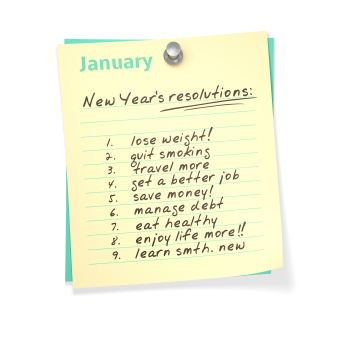 January
New Year's resolutions:
1. lose weight!
2. quit smoking
3. travel more
4. get a better job
5. save money!
6. manage debt
7. eat healthy
8. enjoy life more!!
9. learn smth. new